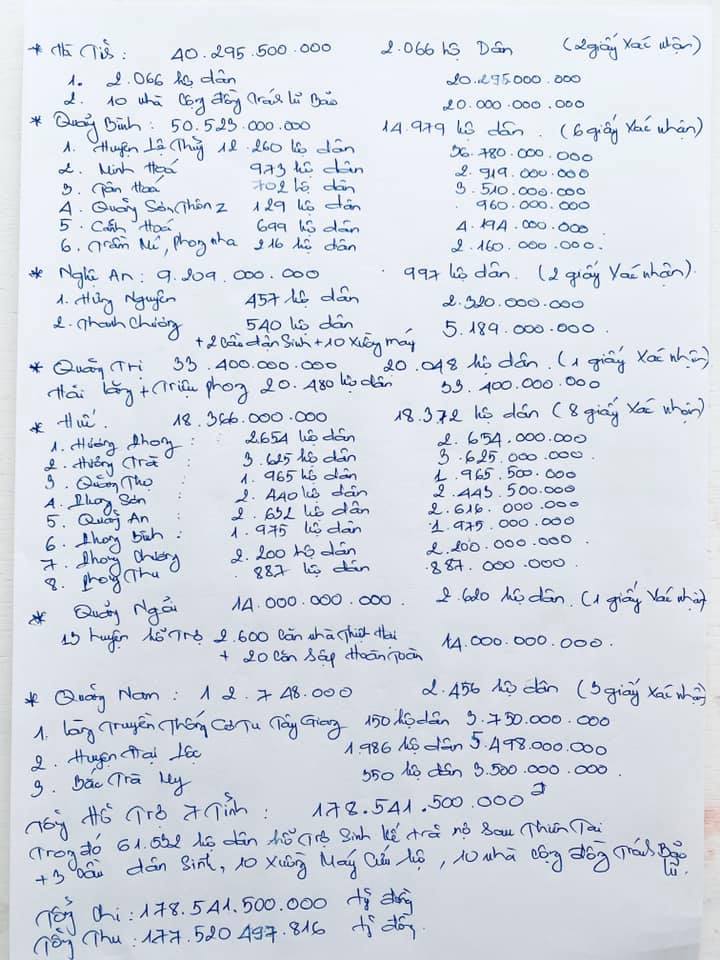 * Hà Tĩnh : 40.295.500.000 2.066 hộ Dân (2 giấy Xác nhận)
1. 2.066 hộ dân 20.295000.000
2. 10 nhà Cộng đồng Tránh lũ Bão 20.000.000.000
* Quảng Bình : 50.523.000.000 14.979 hộ dân . (6 giấy Xác nhận)
1. Huyện Lệ Thủy 12.260 hộ dân 36.780.000.000
2. Minh Hoá 973 hộ dân 2.919.000.000
3. Tân Hoá 702 hộ dân 3.510.000.000
4. Quảng Sơn, Thôn 2 129 hộ dân 960.000.000
5. Cảnh Hoá 699 hộ dân 4.194.000.000
6. Trầm Mé, phong nha 216 hộ dân 2.160.000.000.
* Nghệ An : 9.209.000.000 997 hộ dân. (2 giấy Xác nhận).
1. Hưng Nguyên 457 hộ dân 2.320.000.000
2. Thanh Chương 540 hộ dân 5.189.000.000.
+ 2 Cầu dân Sinh + 10 Xuồng máy
* Quảng Trị 33.400.000.000 20.048 hộ dân. (1 giấy Xác nhận)
Hải lăng + Triệu phong 20.480 hộ dân 33.400.000.000
* Huế. 18.366.000.000 18.372 hộ dân (8 giấy Xác nhận)
1. Hương Phong : 2654 hộ dân 2.654.000.000
2. Hương Trà : 3.625 hộ dân 3.625.000.000
3. Quảng Thọ : 1.965 hộ dân 1.965.500.000
4. Phong Sơn : 2.440 hộ dân 2.443.500.000
5. Quảng An : 2.632 hộ dân 2.616.000.000
6. Phong Bình : 1.975 hộ dân 1.975.000.000
7. Phong Chương 2.200 hộ dân 2.200.000.000
8. Phong Thu 887 hộ dân 887.000.000
* Quảng Ngãi 14.000.000.000. 2.620 hộ dân. (1 giấy Xác nhận)
13 huyện hỗ Trợ 2.600 Căn nhà Thiệt Hại 14.000.000.000.
+ 20 Căn Sập Hoàn Toàn
* Quảng Nam : 12.748.000 2.456 hộ dân (3 giấy Xác nhận)
1. Làng Truyền Thống Cơ Tu Tây Giang 150 hộ dân 3.750.000.000
2. Huyện Đại Lộc 1.986 hộ dân 5.498.000.000
3. Bắc Trà My 350 hộ dân 3.500.000.000.
Tổng Hỗ Trợ 7 Tỉnh : 178.541.500.000
Trong đó 61.532 hộ dân hỗ Trợ Sinh Kế trả nợ Sau Thiên Tai
+ 3 Cầu dân Sinh, 10 Xuồng Máy Cứu hộ, 10 nhà Cộng đồng Tránh Bão lũ.
Tổng Chi : 178.541.500.000 tỷ đồng
Tổng Thu : 177.520 497.816 tỷ đồng.